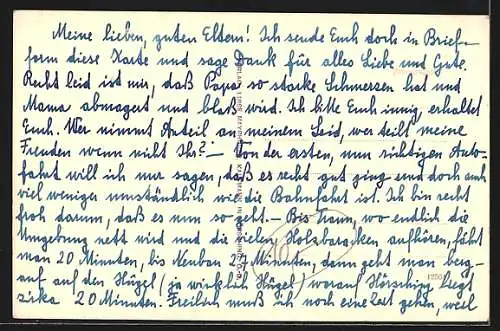 Meine lieben, guten Eltern! Ich sende Euch doch in Brief-
form diese Karte und sage Dank für alles Liebe und Gute.
Recht leid ist mir, daß Papa so starke Schmerzen hat und
Mama abmagert und blaß wird. Ich bitte Euch innig, erhaltet
Euch. Wer nimmt Anteil an meinem Leid, wer teilt meine
Freuden wenn nicht Ihr? – Von der ersten, nun richtigen Auto-
fahrt will ich nur sagen, daß es recht gut ging und doch auch
viel weniger umständlich wie die Bahnfahrt ist. Ich bin recht
froh darum, daß es nun so geht. – Bis hann, wo endlich die
Umgebung nett wird und die vielen Holzbaracken aufhören, fährt
man 20 Minuten, bis Neubau 27 Minuten, dann geht man berg-
auf auf den Hügel (ja wirklich Hügel) worauf Hörsching liegt
zirka 20 Minuten. Freilich muß ich noch eine Zeit gehen, weil